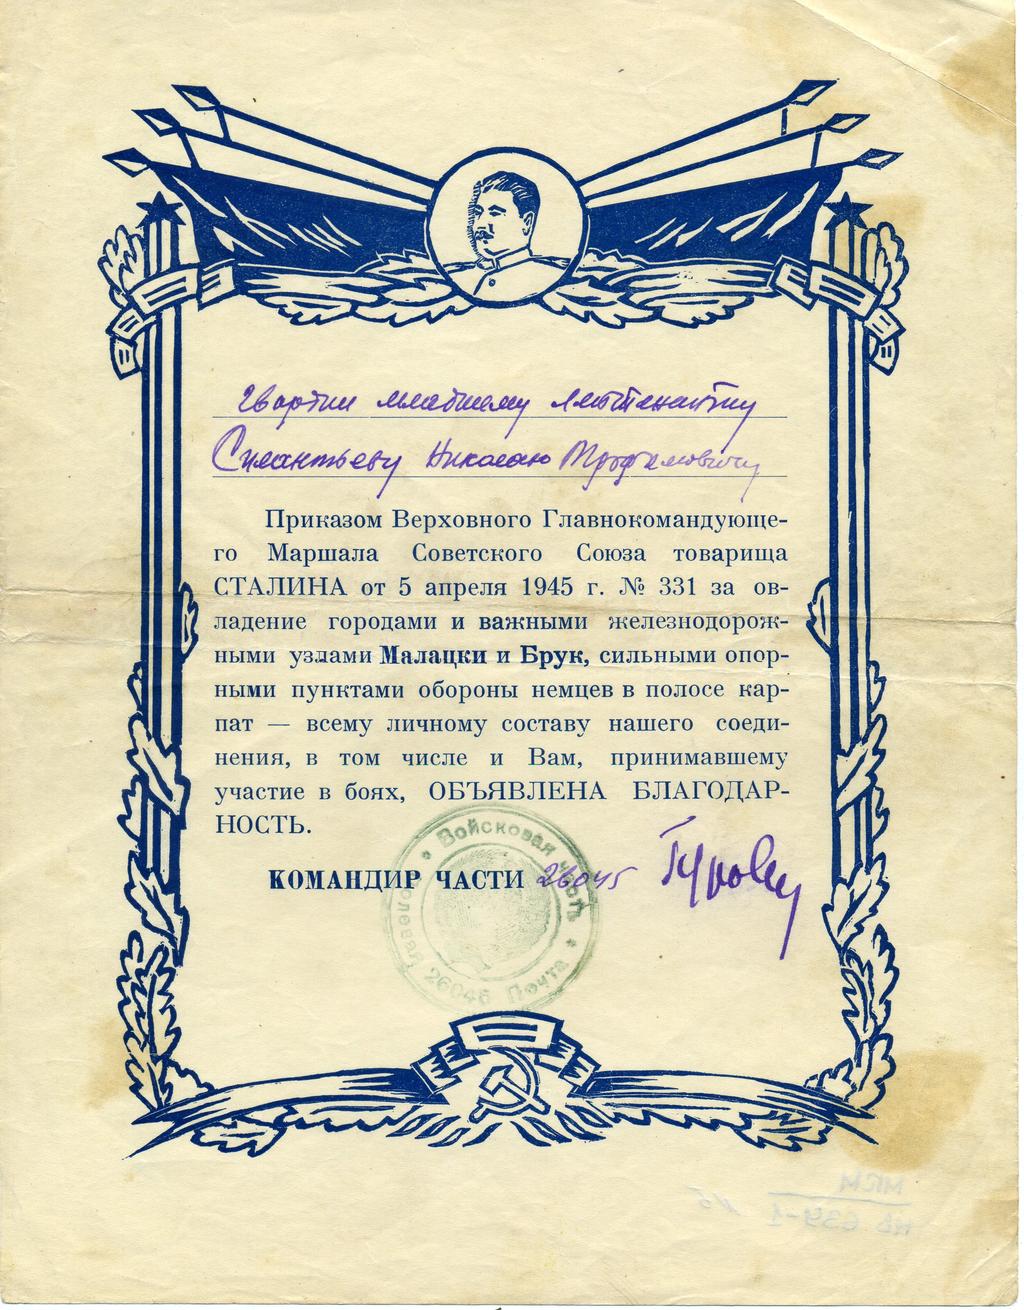 гвардии младшему лейтенанту
Силантьеву Николаю Трофимовичу
Приказом Верховного Главнокомандующе-
го Маршала Советского Союза товарища
СТАЛИНА от 5 апреля 1945 г. № 331 за ов-
ладение городами и важными железнодорож-
ными узлами Малацки и Брук, сильными опор-
ными пунктами обороны немцев в полосе кар-
пат — всему личному составу нашего соеди-
нения, в том числе и Вам, принимавшему
участие в боях, ОБЪЯВЛЕНА БЛАГОДАР-
НОСТЬ.
КОМАНДИР ЧАСТИ 26045
Войсковая часть
Полевая Почта
МГСМ
НВ 639-1